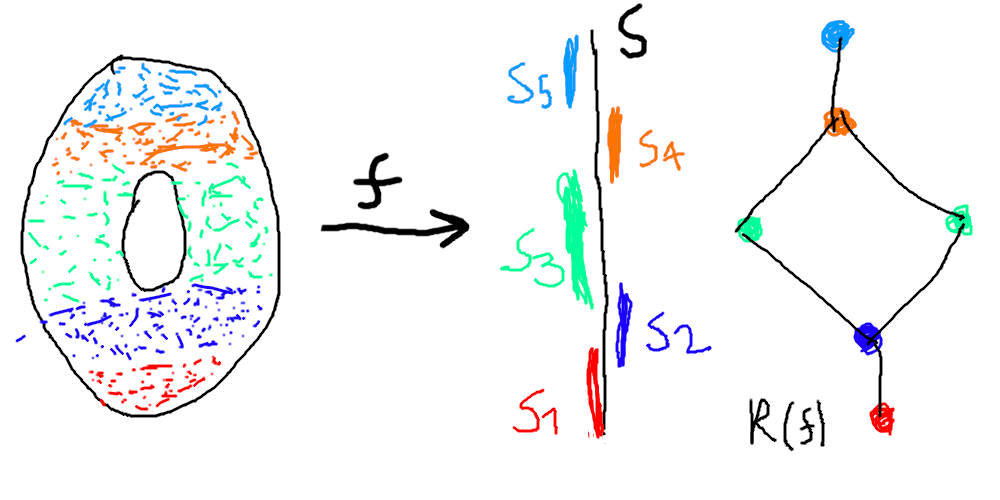 f
S
S5
S4
S3
S2
S1
R(f)